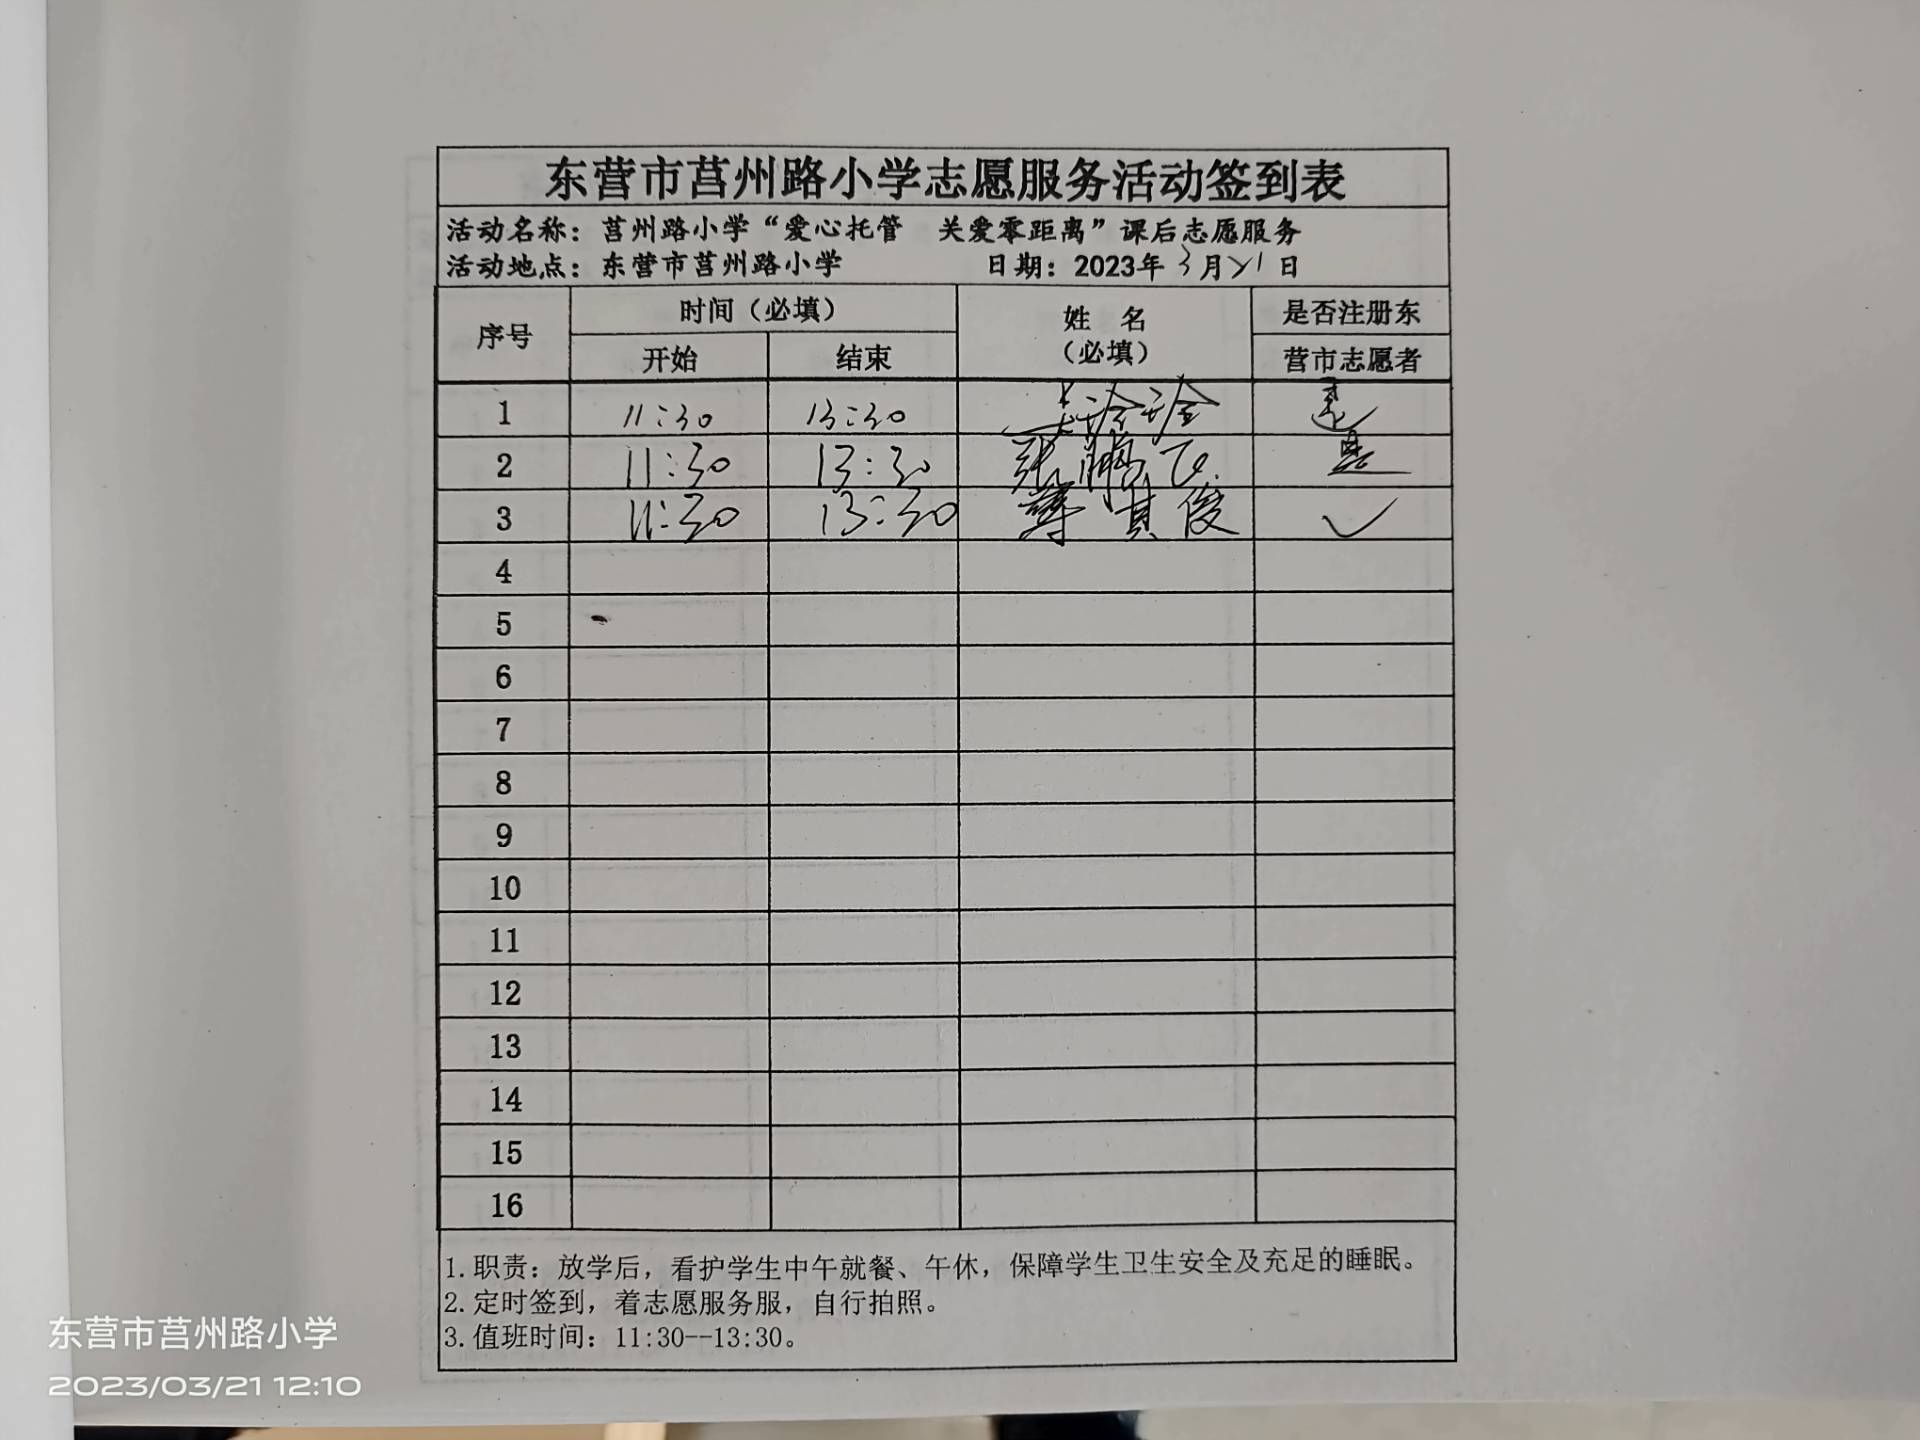 东营市莒州路小学志愿服务活动签到表
活动名称：莒州路小学“爱心托管 关爱零距离”课后志愿服务
活动地点：东营市莒州路小学 日期：2023年3月21日
序号 时间（必填） 姓 名（必填） 是否注册东营市志愿者
开始 结束
1 11:30 13:30 是
2 11:30 13:30 张鹏飞 是
3 11:30 13:30 其俊 ✓
4
5
6
7
8
9
10
11
12
13
14
15
16
1.职责：放学后，看护学生中午就餐、午休，保障学生卫生安全及充足的睡眠。
2.定时签到，着志愿服务服，自行拍照。
3.值班时间：11:30--13:30。
东营市莒州路小学
2023/03/21 12:10